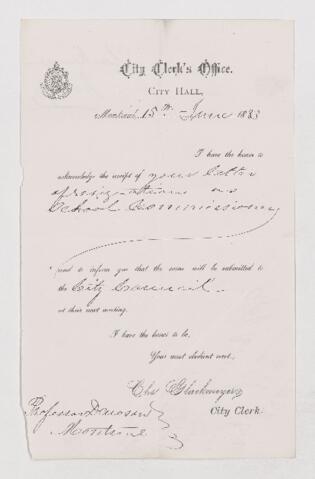 City Clerk's Office.
City Hall,
Montreal, 15th June 1883
I have the honor to
acknowledge the receipt of your letter
of resignation as
School Commissioner
and to inform you that the same will be submitted to
the City Council
at their next meeting.
I have the honor to be,
Your most obedient servt.
Chs Glackmeyer
City Clerk.
Professor Dawson
Montreal